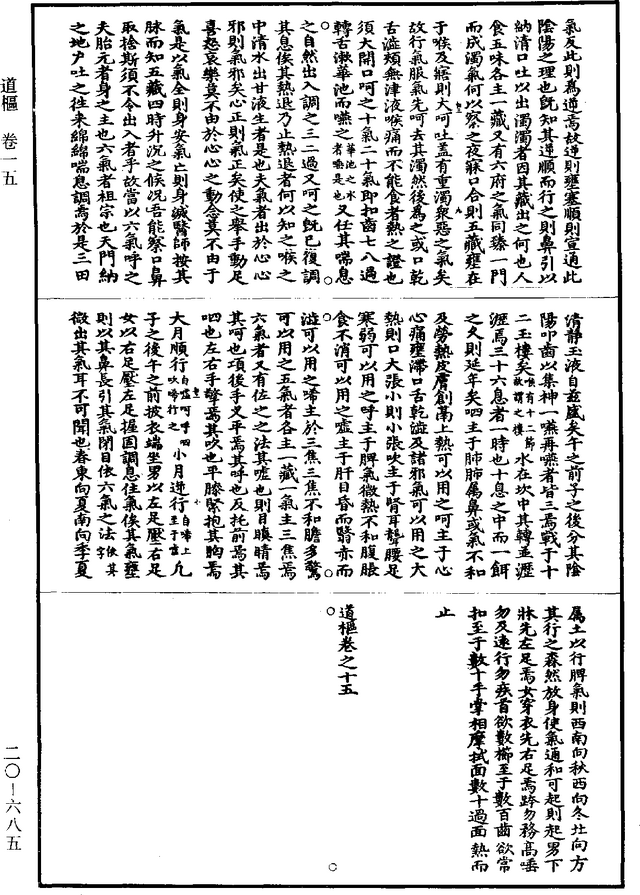 道樞　卷一五
二〇—六八五
氣反此則爲逆焉故逆則壅塞順則宣通此
陰陽之理也旣知其逆順而行之則鼻引以
納清口吐以出濁濁者因其藏出之何也人
食五味各主一藏又有六府之氣同臻一門
而成濁氣何以察之夜寐口合則五藏壅在
于喉及寤則大呵吐蓋有重濁衆惡之氣矣
故行氣服氣先呵去其濁然後爲之或口乾
舌澁頰無津液喉痛而不能食者熱之證也
須大開口呵之十氣二十氣即扣齒七八過
轉舌漱華池而嚥之華池之水者喉是也又任其喘息
之自然出入調之三二過又呵之旣已復調
其息俟其熱退乃止熱退者何以知之喉之
中清水出甘液生者是也夫氣者出於心心
邪則氣邪矣心正則氣正矣使之舉手動足
喜怒哀樂莫不由於心心之動念莫不由于
氣是以氣全則身安氣亡則身滅醫師按其
脉而知五藏四時升沉之候况吾能察口鼻
取捨斯須不令出入者乎故當以六氣呼之
夫胎元者身之主也六氣者祖宗也天門納
之地戶吐之往來綿綿喘息調焉於是三田
清靜玉液自茲盛矣午之前子之後分其陰
陽叩齒以集神一嚥再嚥者皆三焉戰于十
二玉樓矣喉有十二節故謂之樓水在坎中其轉並瀝
瀝焉三十六息者一時也十息之中而一餌
之久則延年矣呬主于肺肺屬鼻或氣不和
及勞熱皮膚創萳上熱可以用之呵主于心
心痛壅滯口舌乾澁及諸邪氣可以用之大
熱則口大張小則小張吹主于腎耳聾腰足
寒弱可以用之呼主于脾氣微熱不和腹脹
食不消可以用之噓主于肝目昏而翳赤而
澁可以用之唏主於三焦三焦不和膽多驚
可以用之五氣者各主一藏一氣主三焦焉
六氣者又有佐之之法其噓也則目瞋睛焉
其呵也項後手叉平焉其呼也反托前焉其
呬也左右手擎焉其吹也平膝緊抱其胸焉
大月順行自噓呵呼呬吹唏行之小月逆行自唏上至于噓凡
子之後午之前披衣端坐男以左足壓右足
女以右足壓左足握固調息住氣俟其氣壅
則以其鼻長引其氣閉目依六氣之法依其
微出其氣耳不可聞也春東向夏南向季夏
屬土以行脾氣則西南向秋西向冬北向方
其行之森然放身使氣通和可起則起男下
牀先左足焉女穿衣先右足焉跨勿務高唾
勿及遠行勿疾首欲數櫛至于數百齒欲常
扣至于數十手掌相摩拭面數十過面熱而
止
道樞卷之十五